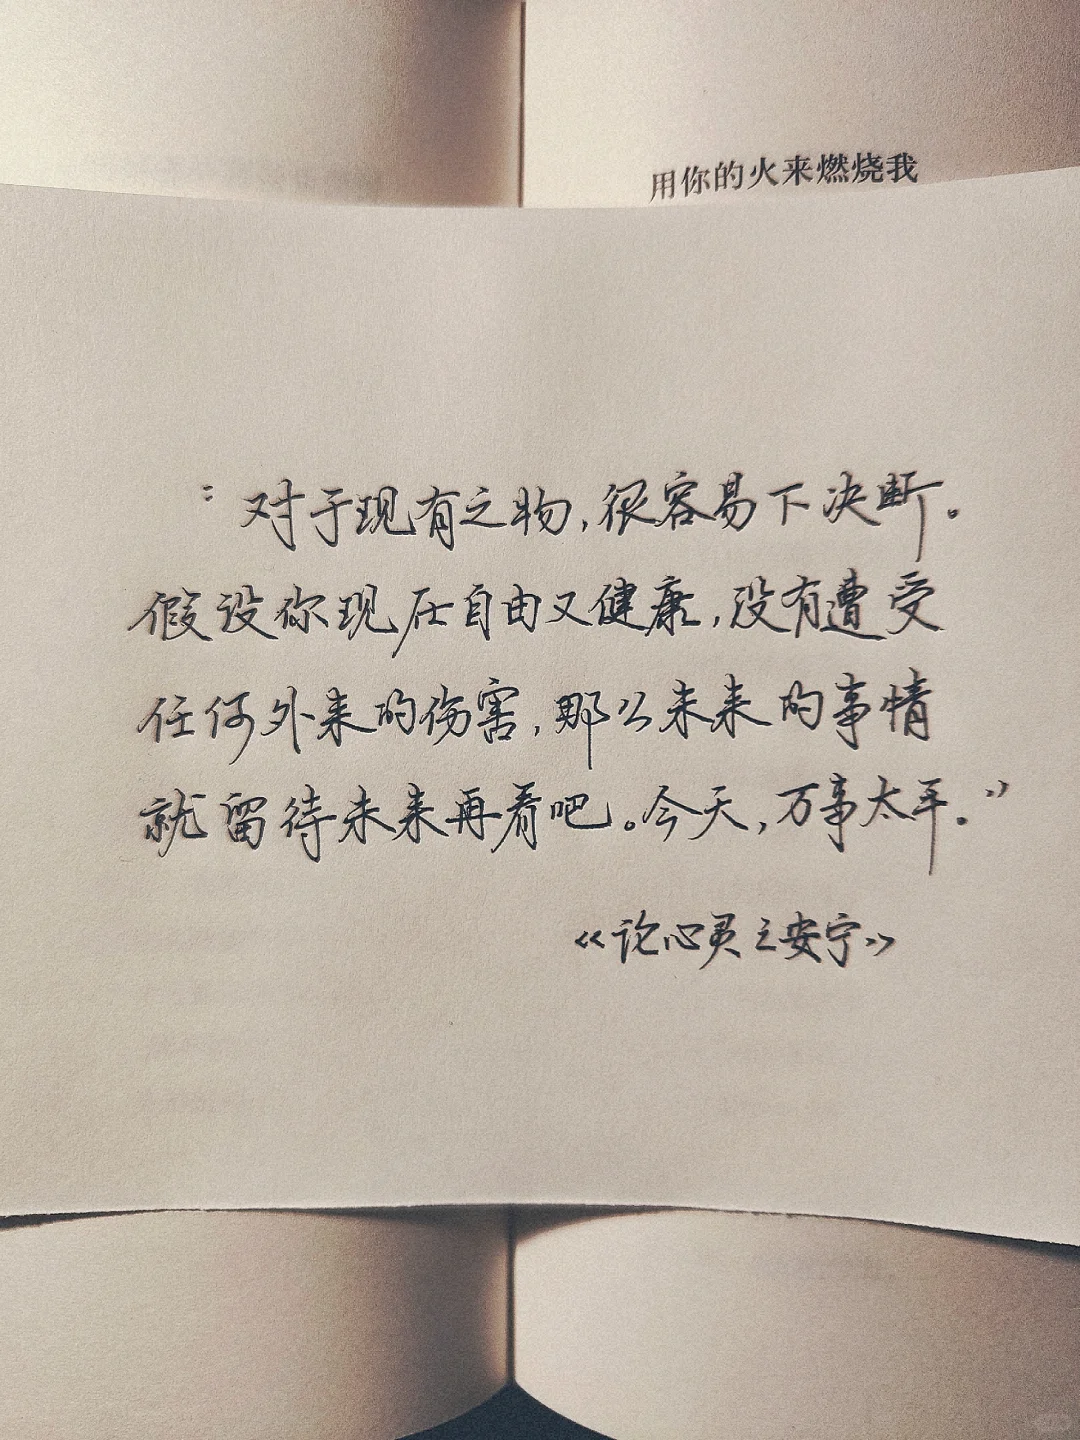 用你的火来燃烧我
“对于现有之物,很容易下决断。
假设你现在自由又健康,没有遭受
任何外来的伤害,那么未来的事情
就留待未来再看吧。今天,万事太平。”
《论心灵之安宁》